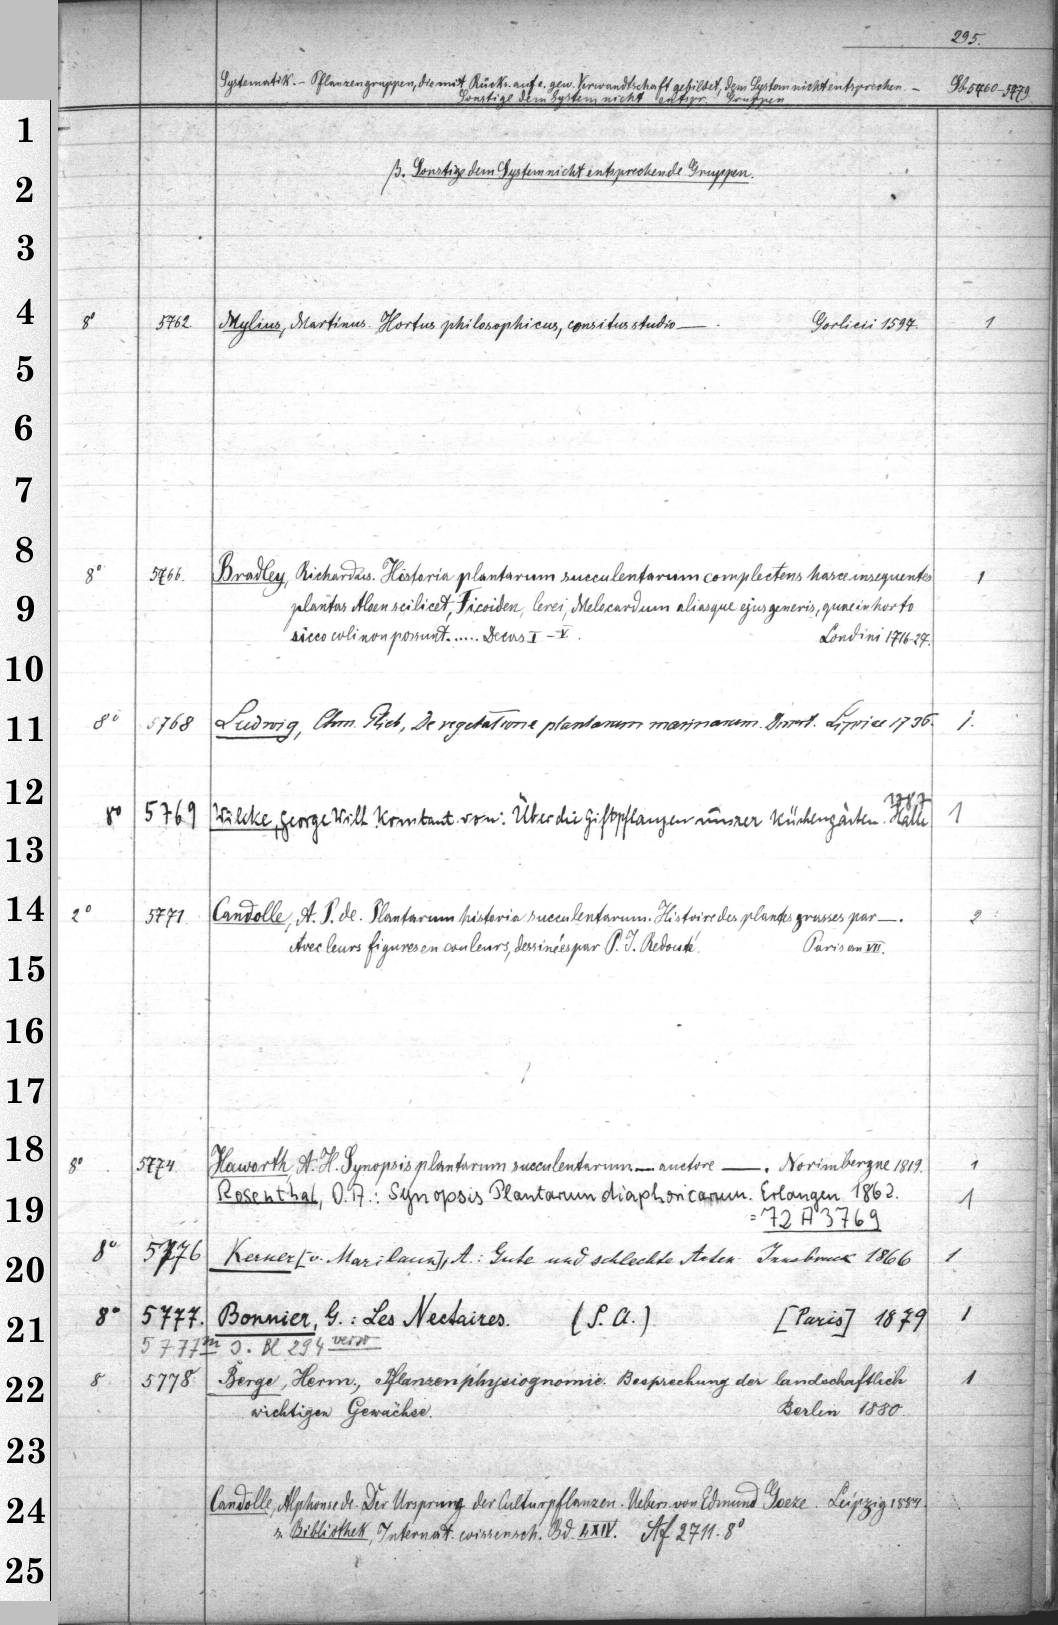 295.
Systematik. - Pflanzengruppen, die mit Rücks. auf e. gew. Verwandtschaft gebildet, dem System nicht entsprechen. - Gb 5760-5779
Sonstige dem System nicht entspr. Gruppen
1
2
3
4
5
6
7
8
9
10
11
12
13
14
15
16
17
18
19
20
21
22
23
24
25
β. Sonstige dem System nicht entsprechende Gruppen.
8° 5762. Mylius, Martinus. Hortus philosophicus, consitus studio —. Gorlicii 1597. 1
8° 5766. Bradley, Richardus. Historia plantarum succulentarum complectens hasce insequentes 1
plantas Aloen scilicet, Ficoiden, Cerei, Melocardum aliasque ejus generis, quae in horto
sicco coli non possunt..... Decas I-V. Londini 1716-27.
8° 5768 Ludwig, Chrn. Glieb, De vegetatione plantarum marinarum. Dissert. Lipsiae 1736. 1.
8° 5769 Wilcke, George Will. Konstant. von: Über die Giftpflanzen unsrer Küchengärten. Halle 1
1787
2° 5771. Candolle, A. P. de. Plantarum historia succulentarum. Histoire des plantes grasses par —. 2
Avec leurs figures en couleurs, dessinées par P. J. Redouté. Paris an VII.
8° 5774. Haworth, A. H. Synopsis plantarum succulentarum — auctore —. Norimbergae 1819. 1
Rosenthal, D. A.: Synopsis Plantarum diaphoricarum. Erlangen 1862. 1
= 72 A 3769
8° 5776 Kerner [v. Marilaun], A.: Gute und schlechte Arten. Innsbruck 1866 1
8° 5777. Bonnier, G.: Les Nectaires. (S. A.) [Paris] 1879 1
5777m s. Bl 294 verso
8 5778. Berge, Herm., Pflanzenphysiognomie. Besprechung der landschaftlich 1
wichtigen Gewächse. Berlin 1880.
Candolle, Alphonse de. Der Ursprung der Culturpflanzen. Uebers. von Edmund Goeze. Leipzig 1884.
= Bibliothek, Internat. wissensch. Bd. LXIV. Af 2711. 8°